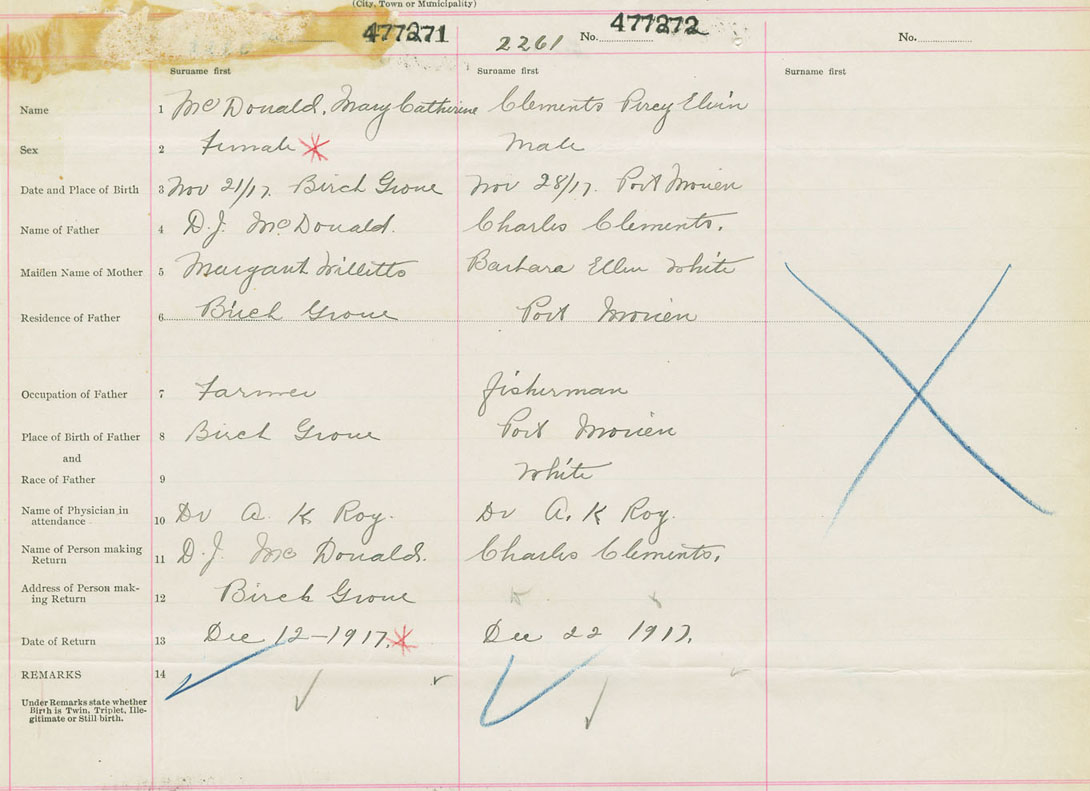 (City, Town or Municipality)
477271 2261 No. 477272 No.
Surname first Surname first Surname first
Name 1 McDonald, Mary Catherine Clements Percy Elvin
Sex 2 Female Male
Date and Place of Birth 3 Nov 21/17. Birch Grove Nov 28/17. Port Morien
Name of Father 4 D.J. McDonald. Charles Clements.
Maiden Name of Mother 5 Margaret Willetts Barbara Ellen White
Residence of Father 6 Birch Grove Port Morien
Occupation of Father 7 Farmer fisherman
Place of Birth of Father 8 Birch Grove Port Morien
and
Race of Father 9 White
Name of Physician in
attendance 10 Dr A. K Roy. Dr A. K Roy.
Name of Person making
Return 11 D.J. McDonald. Charles Clements.
Address of Person mak-
ing Return 12 Birch Grove
Date of Return 13 Dec 12-1917. Dec 22 1917.
REMARKS 14
Under Remarks state whether
Birth is Twin, Triplet, Ille-
gitimate or Still birth.